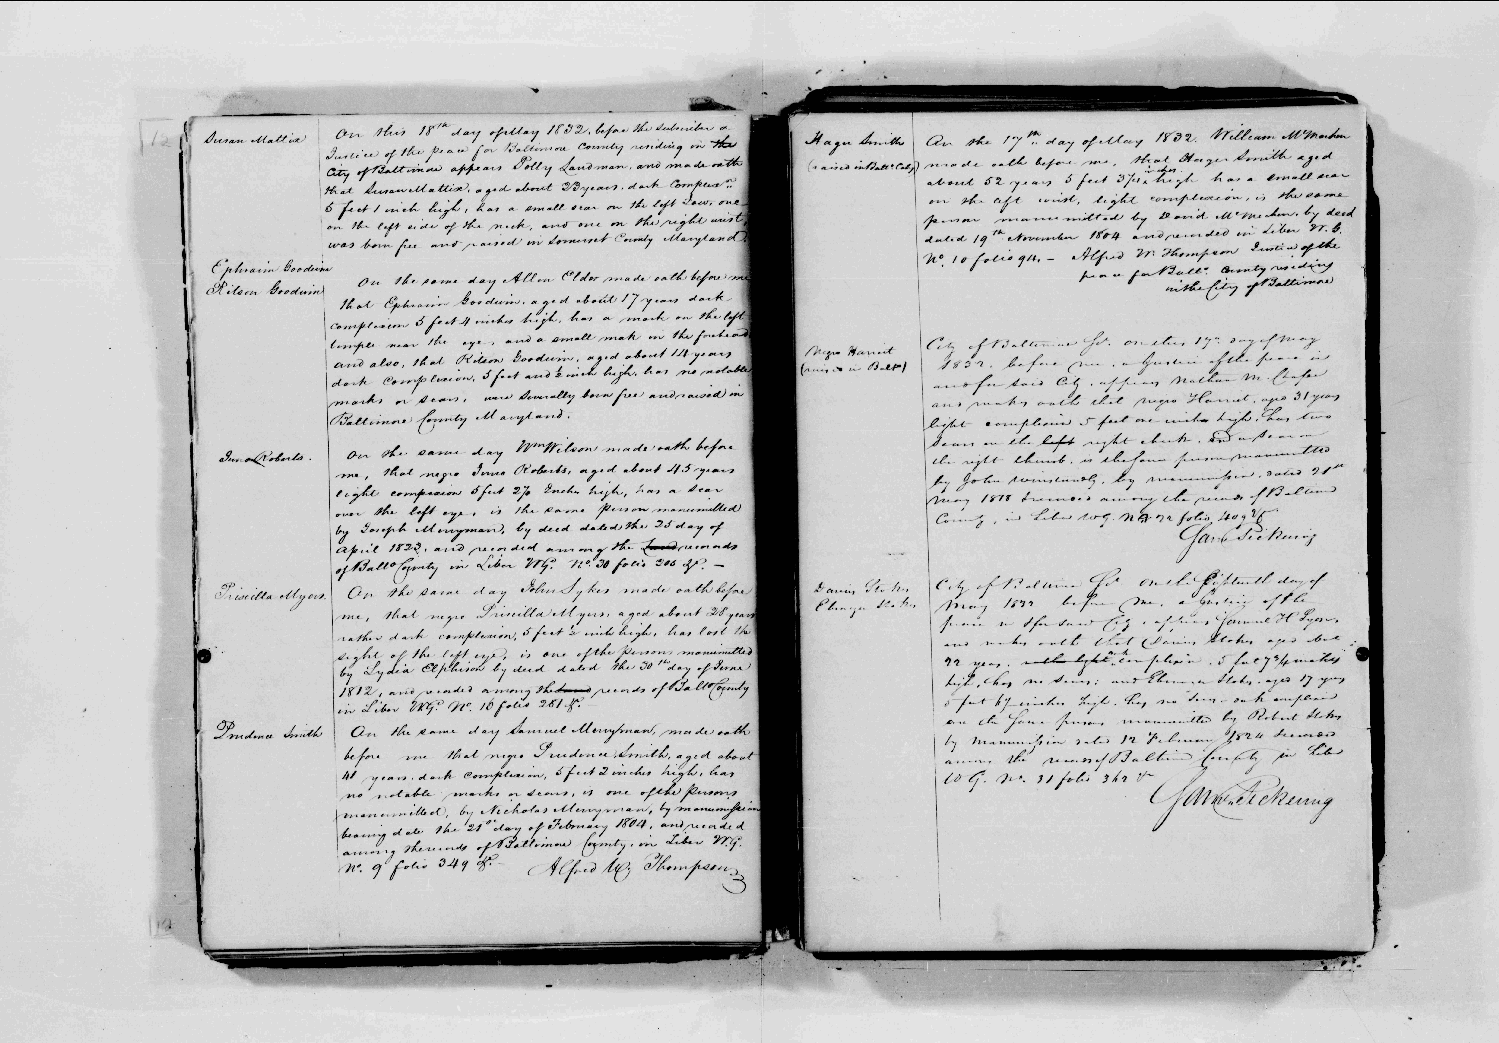 Susan Mattix
On this 18th day of May 1832, before the subscriber a
Justice of the peace for Baltimore County residing in the
City of Baltimore appears Polly Landman, and made oath
that Susan Mattix, aged about 23 years, dark Complexn
5 feet 1 inch high, has a small scar on the left Jaw, one
on the left side of the neck, and one on the right wrist,
was born free and raised in Somerset County Maryland
Ephraim Goodwin
Rilson Goodwin
On the same day Allen Elder made oath before me
that Ephraim Goodwin, aged about 17 years dark
complexion 5 feet 4 inches high, has a mark on the left
temple near the eye, and a small mark on the forehead
and also, that Rilson Goodwin, aged about 14 years
dark complexion, 5 feet and ½ inch high, has no notable
marks or scars, were severally born free and raised in
Baltimore County Maryland.
Roberts.
On the same day Wm Wilson made oath before
me, that negro Roberts, aged about 45 years
light complexion 5 feet Inches high, has a scar
over the left eye, is the same person manumitted
by Joseph Merryman, by deed dated the 25 day of
April 1823, and recorded among the Land records
of Balto County in Liber WG. No. 30 folio 205 &c. —
Priscilla Myers
On the same day John Sykes made oath before
me, that negro Priscilla Myers, aged about 28 years
rather dark complexion, 5 feet 2 inch high, has lost the
sight of the left eye, is one of the persons manumitted
by Lydia by deed dated the 30th day of June
1812, and recorded among the Land records of Balto County
in Liber WG. No. folio 281 &c. —
Prudence Smith
On the same day Samuel Merryman, made oath
before me that negro Prudence Smith, aged about
41 years, dark complexion, 5 feet 2 inches high, has
no notable marks or scars, is one of the persons
manumitted, by Nicholas Merryman, by manumission
bearing date the 21st day of February 1804, and recorded
among the records of Baltimore County, in Liber W.G.
No. 9 folio 349 &c. — Alfred W. Thompson
Hager Smith
(raised in Balto City)
On the 17th day of May 1832. William McMechen
made oath before me, that Hager Smith aged
about 52 years 5 feet inches high has a small scar
on the left wrist, light complexion, is the same
person manumitted by David McMechen, by deed
dated 19th November 1804 and recorded in Liber W.G.
No. 10 folio — Alfred W. Thompson Justice of the
peace for Balto County residing
in the City of Baltimore
Negro Harriet
(raised in Balto)
City of Baltimore Sct. on this 17th day of May
1832, before me, a Justice of the peace in
and for said City, appears Nathan M.
and makes oath that negro Harriet, aged 31 years
light complexion 5 feet one inches high, has two
scars on the left right cheek, and a scar on
the right thumb, is the same person manumitted
by John by manumission, dated 21st
May 1818 recorded among the records of Baltimore
County, in Liber WG. No folio 409
Saml Pickering
Darius Stokes
Ebenezer Stokes
City of Baltimore Sct. on the fifteenth day of
May 1832 before me, a Justice of the
peace in & for said City, appears Samuel H
and makes oath that Darius Stokes aged abt
22 years, rather light dark complexion, 5 feet inches
high, has no scars; and Ebenezer Stokes, aged 17 years
5 feet inches high, has no scars, dark complexion
are the same persons manumitted by Robert Stokes
by manumission dated 12 February 1824 recorded
among the records of Baltimore County in Liber
W G. No. 31 folio 362 &c
Saml Pickering